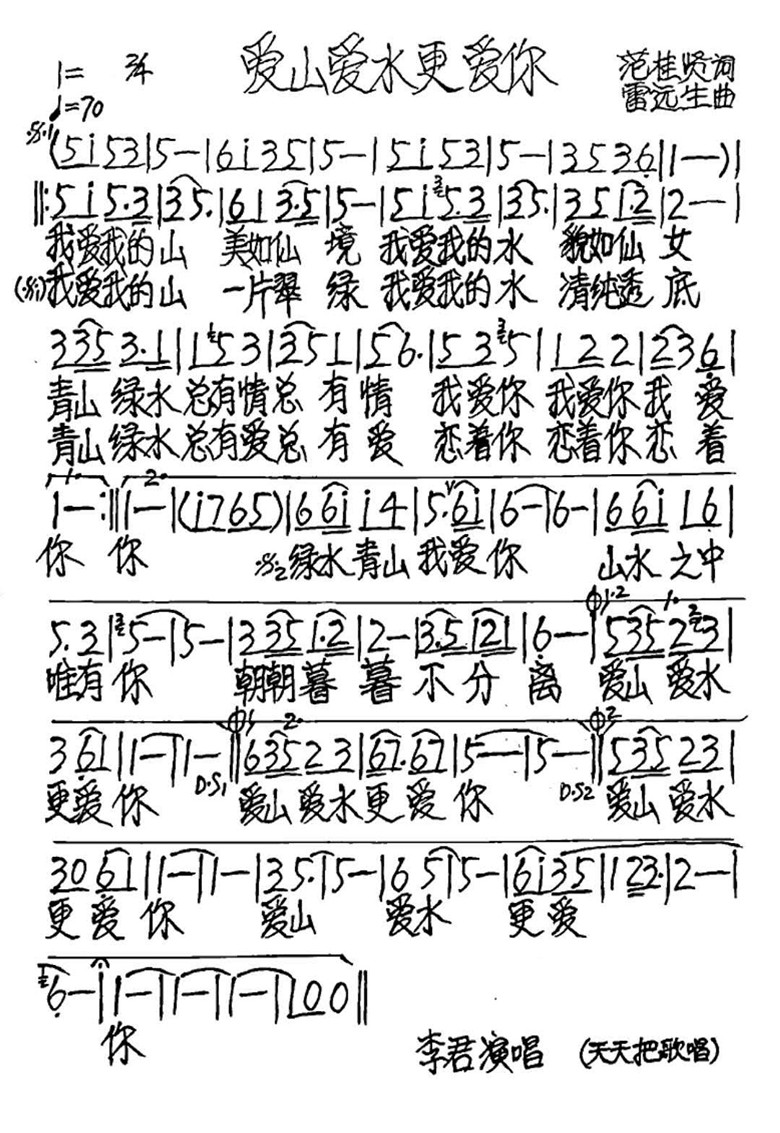 1= 2/4 爱山爱水更爱你 范桂贤词
♩=70 雷远生曲
(5i53|5—|6i35|5—|5i53|5—|3536|1—)|
‖:5i5·3|35·|613·5|5—|5i5·3|35·|351·2|2—|
我爱我的山 美如仙 境 我爱我的水 貌如仙 女
我爱我的山 一片翠 绿 我爱我的水 清纯透 底
3353·1|153|351|56·|535|122|236|
青山 绿水总有情总 有情 我爱你 我爱你我 爱
青山 绿水总有爱总 有爱 恋着你 恋着你恋 着
1—:‖1—|(i765)|66ii4|5·6i|6—|6—|66i16|
你 你 绿水青山我爱你 山水之中
5·3|5—|5—|3351·2|2—|3·5121|6—|535223|
唯有你 朝朝暮 暮 不 分 离 爱山 爱水
361|1—|1—‖63523|67·67|5—|5—‖53523|
更爱你 D.S1 爱山爱水更爱你 D.S2 爱山 爱水
3061|1—|1—|35·|5—|65|5—|6i35|123·|2—|
更爱你 爱山 爱水 更爱
6—|1—|1—|1—|100‖
你
李君演唱 (天天把歌唱)